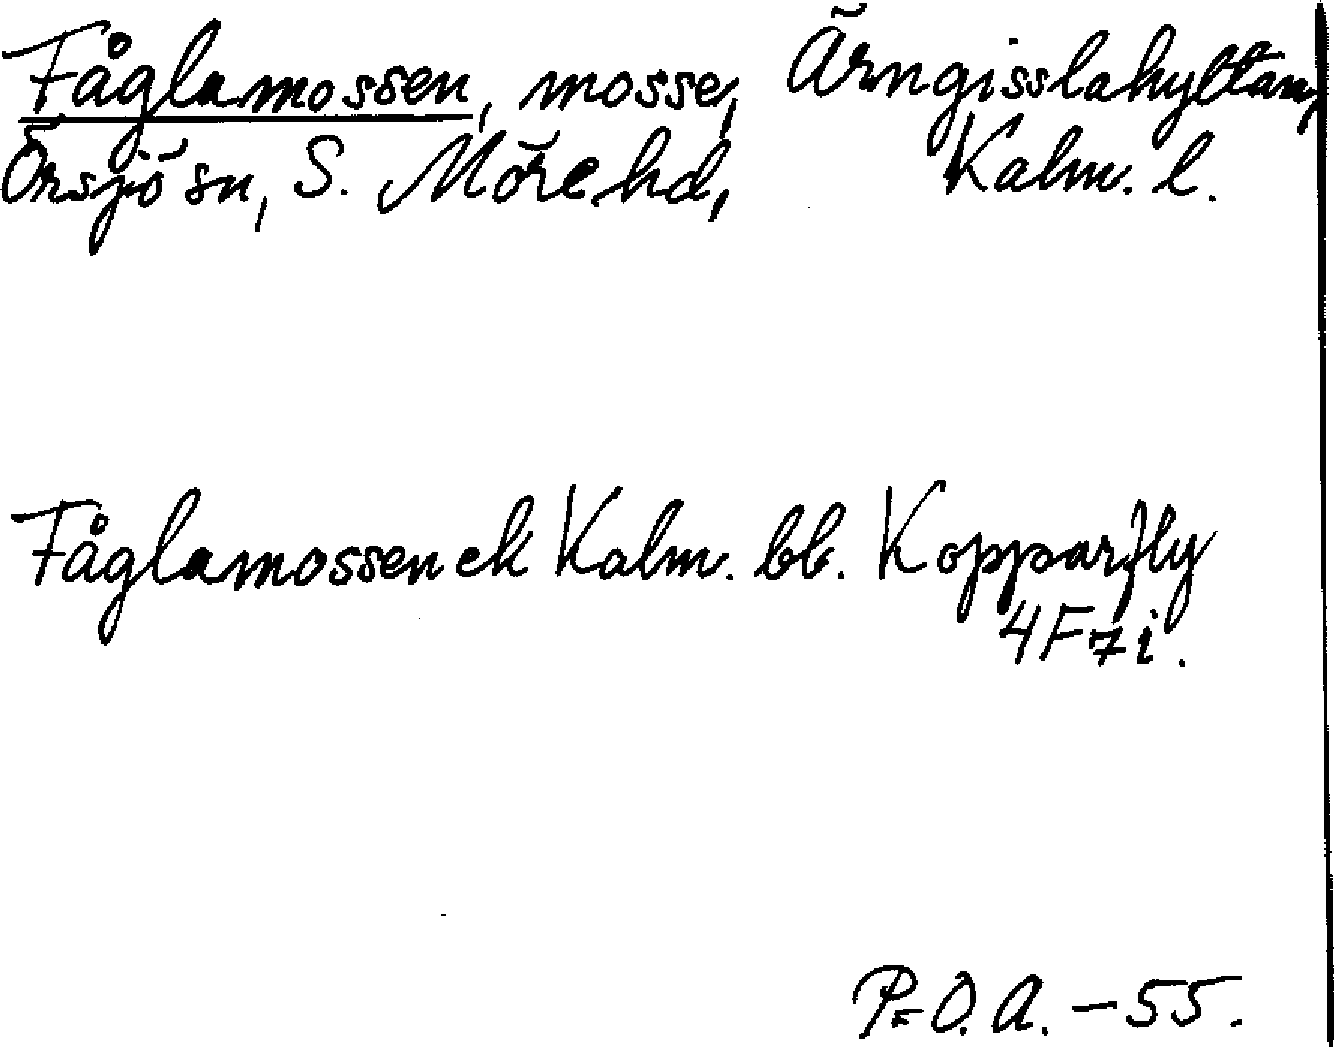 Fåglamossen, mosse, Ärngisslahyltan,
Örsjö sn, S. Möre hd, Kalm. l.
Fåglamossen ek Kalm. bl. Kopparfly
4F7i.
P=O.A. -55.